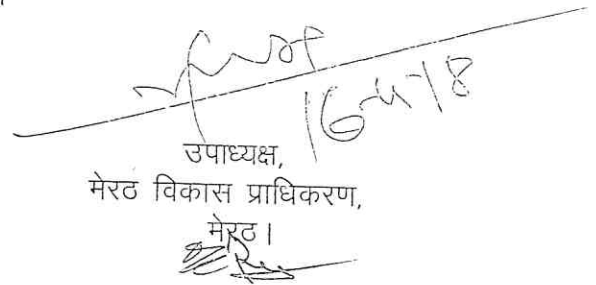 16-4-18
उपाध्यक्ष,
मेरठ विकास प्राधिकरण,
मेरठ।